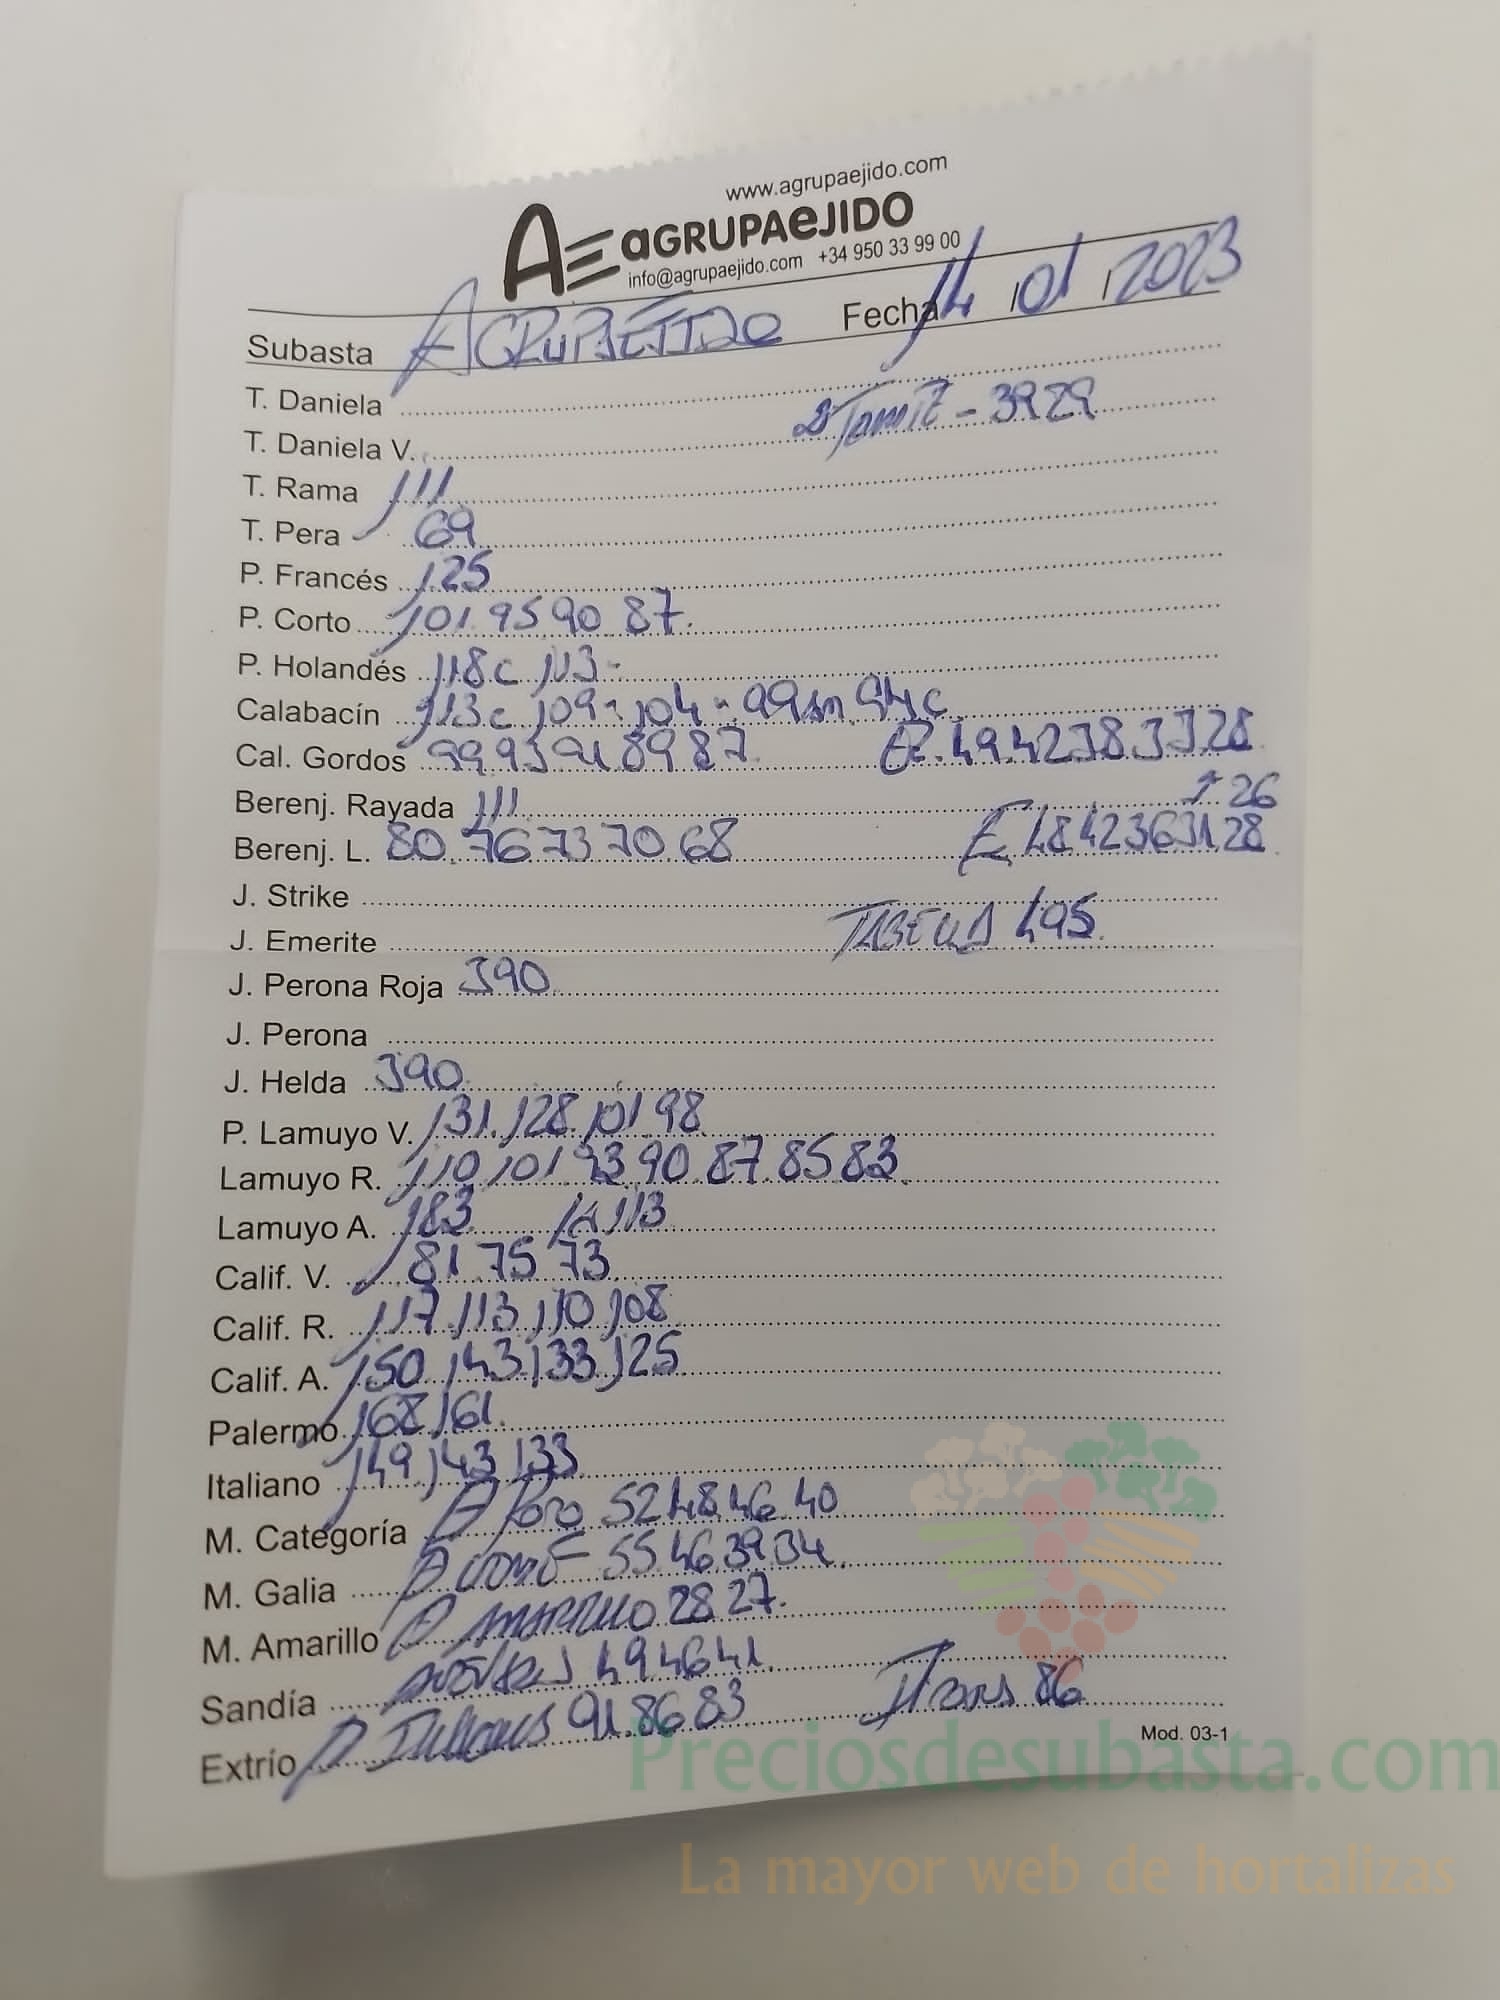 www.agrupaejido.com
AE aGRUPAeJIDO
info@agrupaejido.com +34 950 33 99 00
Subasta AGRUPAEJIDO Fecha 14 / 01 / 2023
T. Daniela
T. Daniela V. - 39 29
T. Rama 111
T. Pera 69
P. Francés 125
P. Corto 101. 95 90 87.
P. Holandés 118c 113-
Calabacín 113c 109- 104- 99 94c
Cal. Gordos 99 93 91 89 87 49.42 38 33 28
Berenj. Rayada 111 26
Berenj. L. 80. 76 73 70. 68 E 48 42 36 31.28
J. Strike
J. Emerite TABELLA 495
J. Perona Roja 390
J. Perona
J. Helda 390
P. Lamuyo V. 131. 128. 101 98
Lamuyo R. 110 101 93 90. 87. 85 83
Lamuyo A. 183 113
Calif. V. 81. 75 73
Calif. R. 117. 113 110 108
Calif. A. 150 143 133 125
Palermo 168 161.
Italiano 149 143 133
M. Categoría 52 48 46 40
M. Galia 55 46 39 34
M. Amarillo AMARILLO 28 27.
Sandía 49 46 41
Extrío 91. 86 83 86
Mod. 03-1
Preciosdesubasta.com
La mayor web de hortalizas